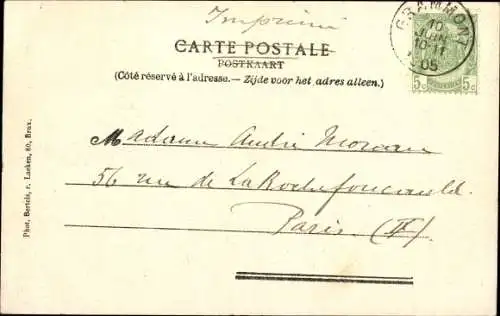 Imprimé
GRAMMONT
10
JUIN
10-11
05
5c 5c
CARTE POSTALE
POSTKAART
(Côté réservé à l'adresse. — Zijde voor het adres alleen.)
Madame André Moreau
56 rue de La Rochefoucauld.
Paris (IX)
Phot. Bertels, r. Laeken, 60, Brux.